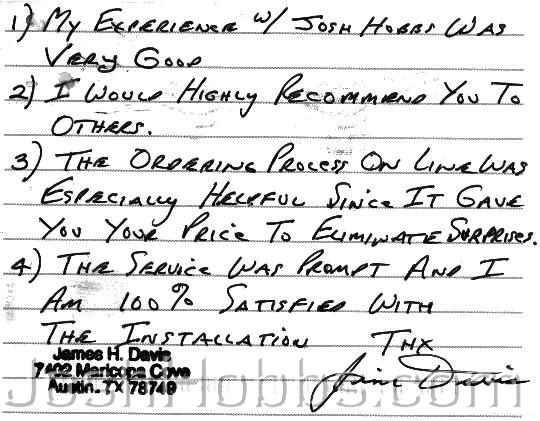 1) My Experience w/ Josh Hobbs Was
Very Good
2) I Would Highly Recommend You To
Others.
3) The Ordering Process On Line Was
Especially Helpful Since It Gave
You Your Price To Eliminate Surprises.
4) The Service Was Prompt And I
Am 100% Satisfied With
The Installation Thx
James H. Davis
7402 Maricopa Cove
Austin. TX 78749
Jim Davis
JoshHobbs.com